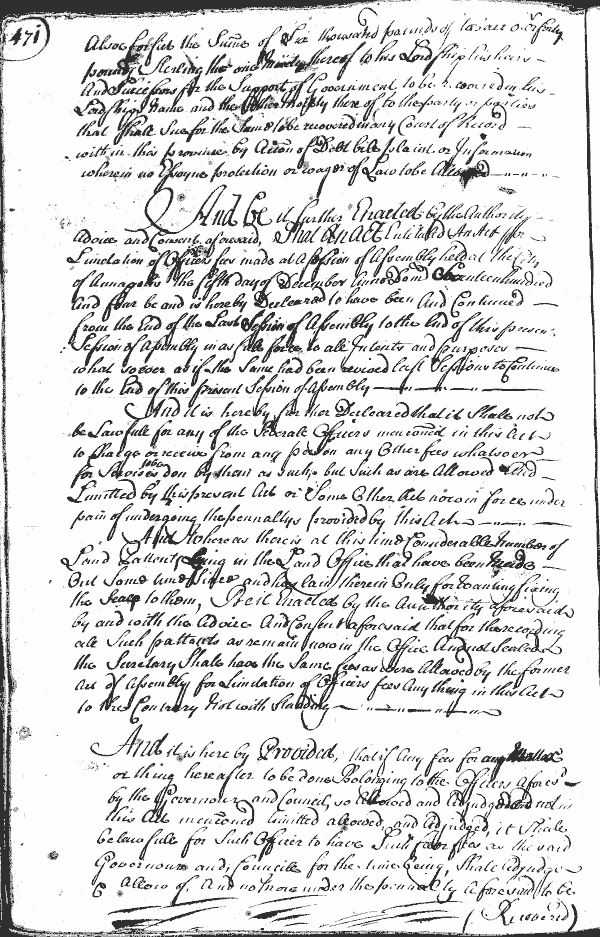 471
Alsoe forfeit the Sume of Six thousand pounds of
pounds Sterling the one thereof to his Lordship his heirs
And Successors for the Support of Government to be recovered in his
Lordships Name and the Other moiety thereof to the party or parties
that Shall Sue for the Same to be recovered in any Court of Record
with in this province by Action of Debt bill plaint or Information
wherein no Essoyne protection or wager of Law to be Allowed
And be it further Enacted by the Authority
Advice and Consent aforesaid, That an Act Entituled An Act for
Limitation of Officers fees made at a Session of Assembly held at the City
of Annapolis the fifth day of December Anno Domi Seventeen hundred
And four be and is hereby Declared to have been And Continued
from the End of the Last Session of Assembly to the End of this present
Session of Assembly in as full force to all Intents and purposes
what soever as if the Same had been revived last Sessions to Continue
to the End of this present Session of Assembly
And it is hereby further Decleared that it Shall not
be Lawfull for any of the Severall Officers mencioned in this Act
to Charge or receive from any person any Other fees whatsoever
for Services to be don by them as such but Such as are Allowed And
Limitted by this present Act or Some Other Act now in force under
pain of undergoing the pennaltys provided by this Act
And Whereas there is at this time Considerable Number of
Land Pattents lying in the Land Office that have been Made
Out Some time Since and have lain therein Only for want of fixing
the Seale to them, Be it Enacted by the Authority aforesaid
by and with the Advice And Consent aforesaid that for the recording
all Such pattents as remain now in the Office And not Sealed
the Secretary Shall have the Same fees as were Allowed by the former
Act of Assembly for Limitation of Officers fees Any thing in this Act
to the Contrary Notwith Standing
And it is here by Provided, that if Any fees for any Matter
or thing hereafter to be done Belonging to the Officers afores'd
by the Governour and Council, so Allowed and Adjudged and not in
this Act mencioned limitted allowed, and Adjudged, it Shall
be lawfull for Such Officer to have Such fees as the said
Governour and Councill for the time being, Shall adjudge
Allow of, And no more under the pennalty aforesaid to be
(Recovered)